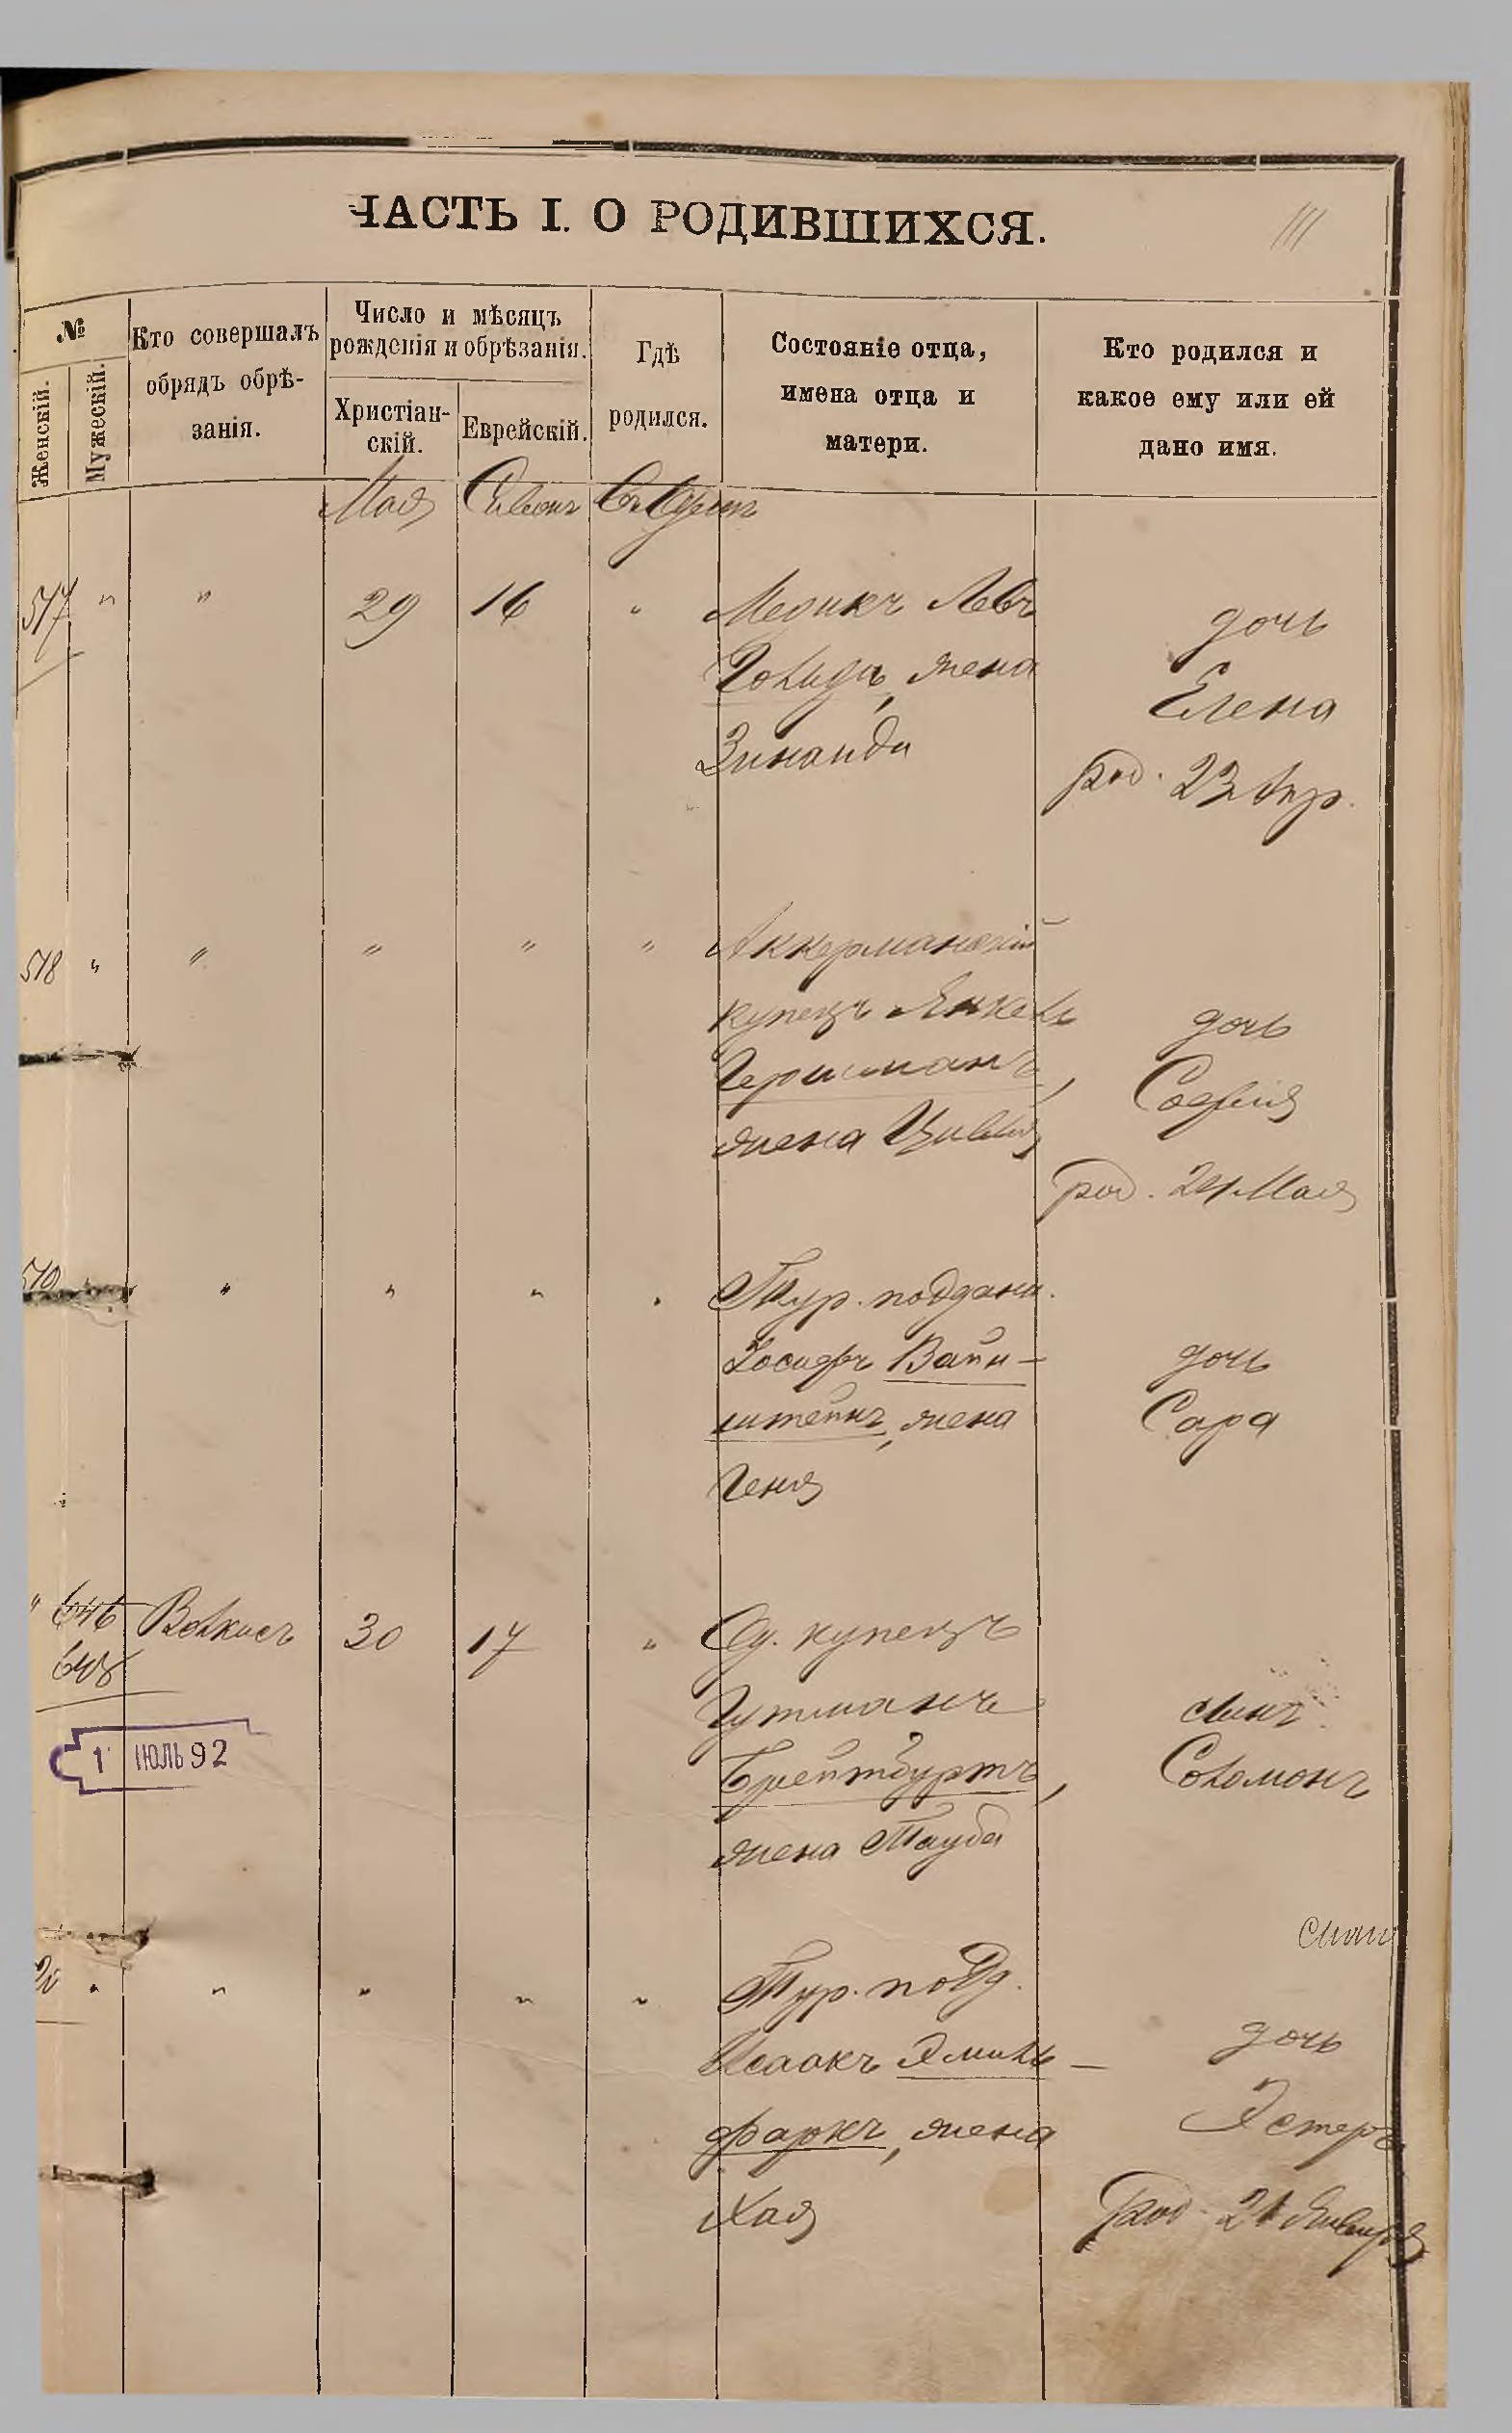 ЧАСТЬ I. О РОДИВШИХСЯ.
111
№
Женскій.
Мужескій.
Кто совершалъ
обрядъ обрѣ-
занія.
Число и мѣсяцъ
рожденія и обрѣзанія.
Христіан-
скій.
Еврейскій.
Гдѣ
родился.
Состояніе отца,
имена отца и
матери.
Кто родился и
какое ему или ей
дано имя.
Мая Сивонъ
517 " " 29 16 " Медикъ Левъ
жена
Зинаида
дочь
Елена
род. 23 Апр.
518 " " " " " Аккерманскій
купецъ Янкель
Гершманъ,
жена Цивья
дочь
Софія
род. 24 Мая
519 " " " " Тур. поддан.
Іосифъ Вайн-
штейнъ, жена
Геня
дочь
Сара
" 646 Волкисъ 30 17 " Од. купецъ
648
Гутманъ
Брейтбуртъ,
жена Тауба
сынъ
Соломонъ
1 ІЮЛЬ 92
20 " " " " " Тур. подд.
Исаакъ Эмиль-
фаркъ, жена
Хая
дочь
Эстеръ
род. 21 Января